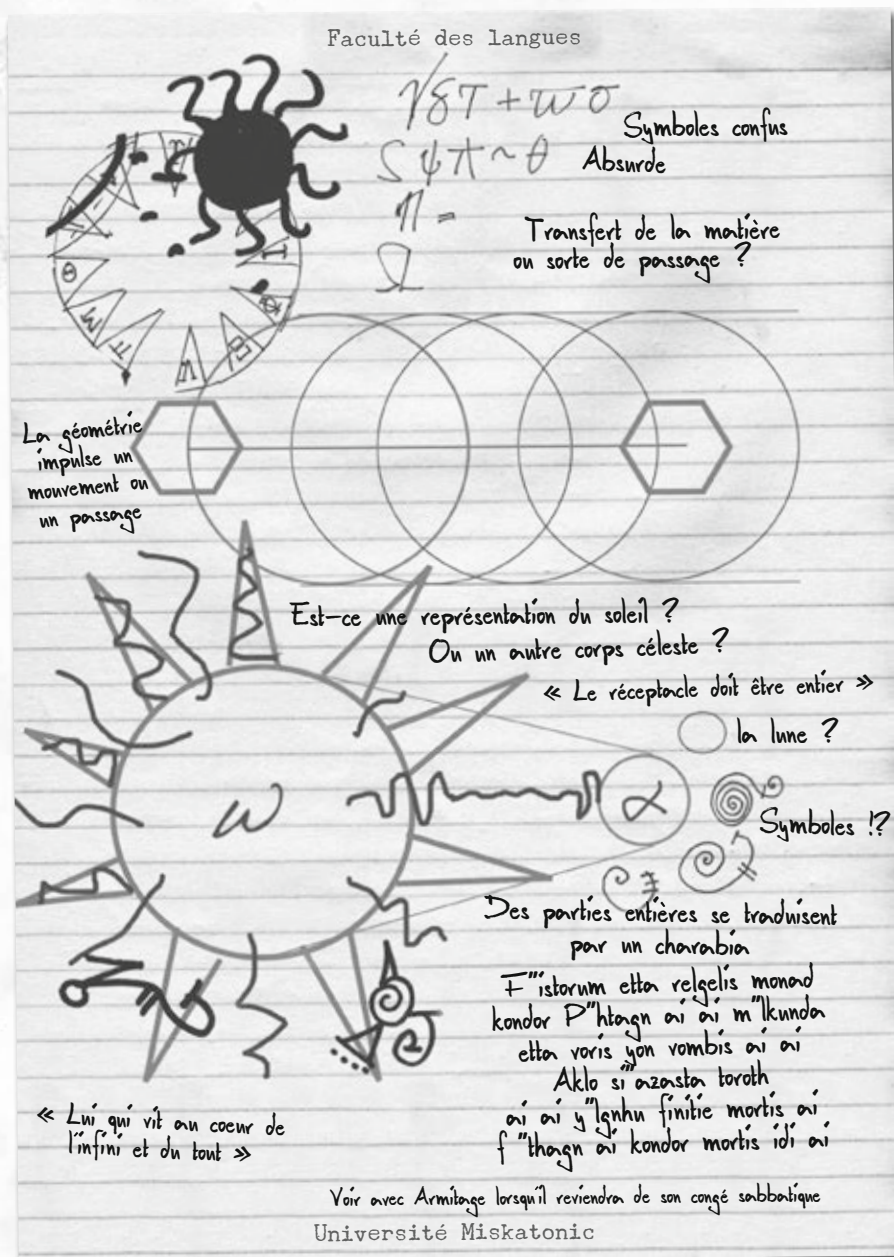 Faculté des langues
γδT + ω σ
Symboles confus
Absurde
Transfert de la matière
ou sorte de passage ?
La géométrie
impulse un
mouvement ou
un passage
Est-ce une représentation du soleil ?
Ou un autre corps céleste ?
« Le réceptacle doit être entier »
la lune ?
ω
α
Symboles !?
Des parties entières se traduisent
par un charabia
F'''istorum etta relgelis monad
kondor P''htagn ai ai m''lkunda
etta voris yon vombis ai ai
Aklo si'''azasta toroth
ai ai y''lgnhu finitie mortis ai
f ''thagn ai kondor mortis idi ai
« Lui qui vit au coeur de
l'infini et du tout »
Voir avec Armitage lorsqu'il reviendra de son congé sabbatique
Université Miskatonic